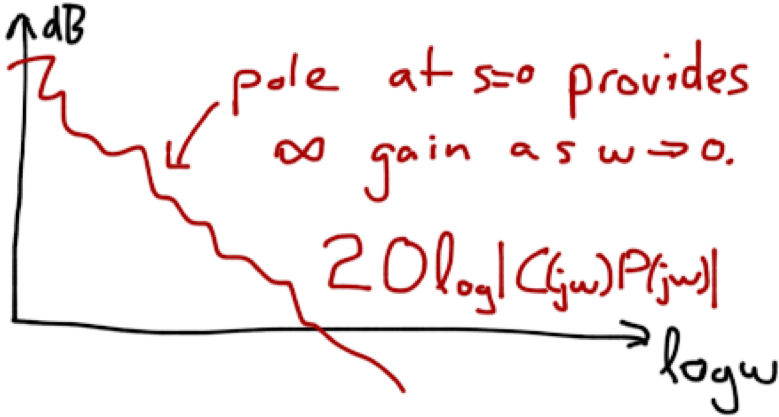 dB
pole at s=0 provides
∞ gain as w→0.
20log|C(jw)P(jw)|
logw